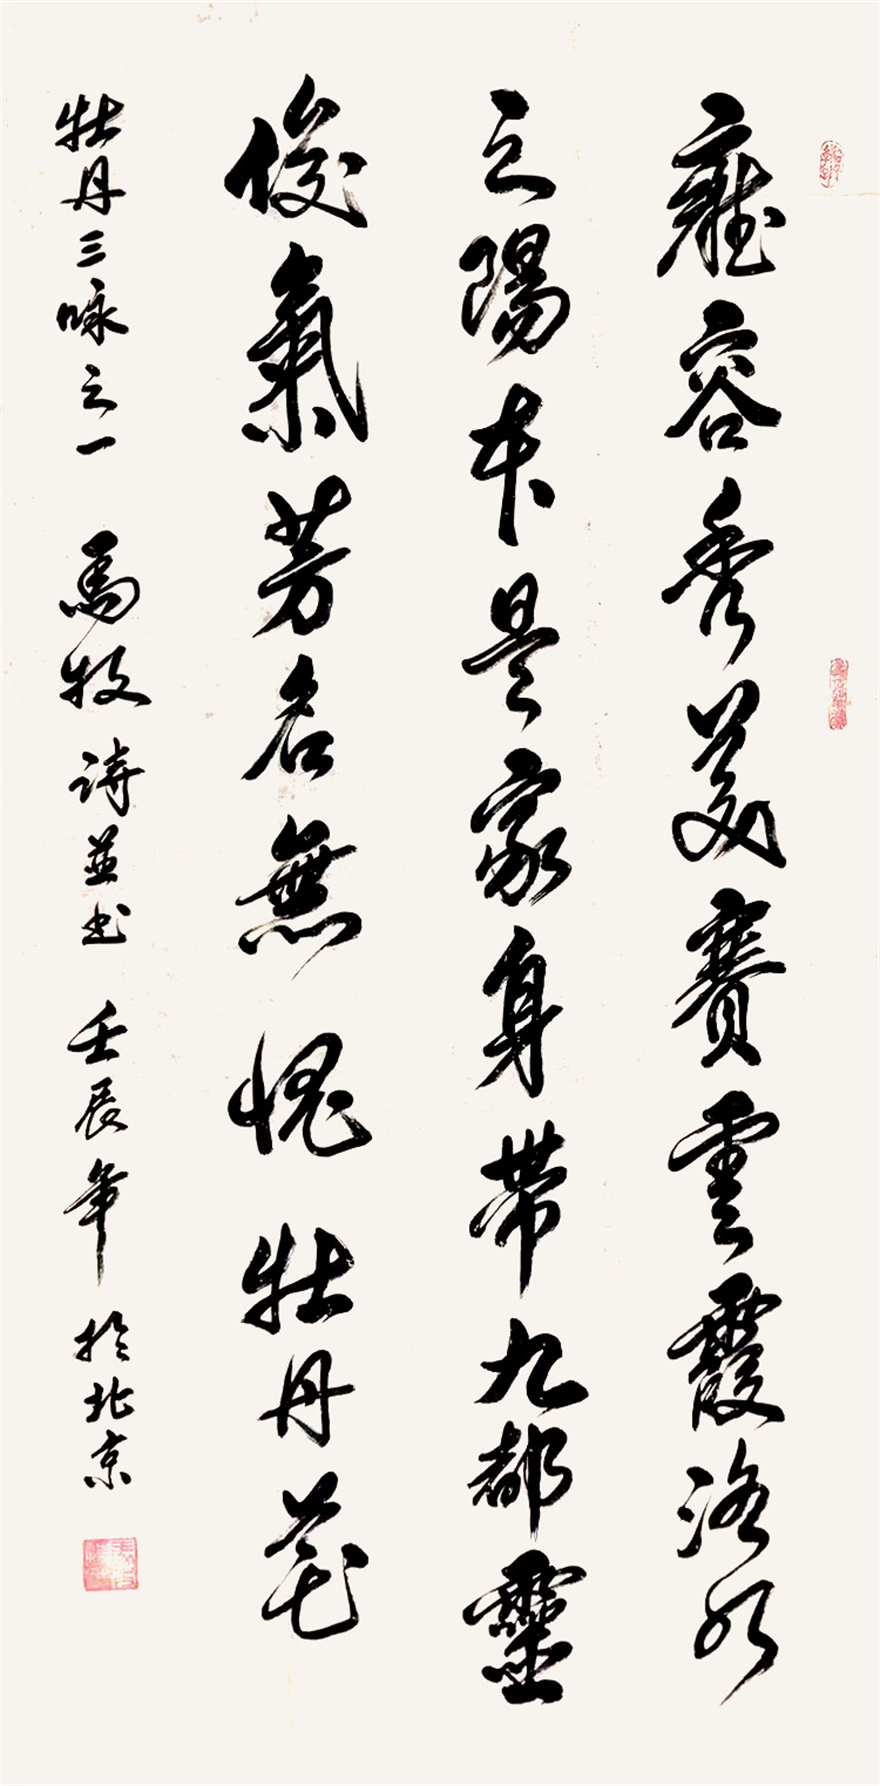 雍容秀美賽雲霞洛水
之陽本是家身帶九都靈
俊氣芳名無愧牡丹花
牡丹三咏之一 馬牧詩並書 壬辰年 於北京